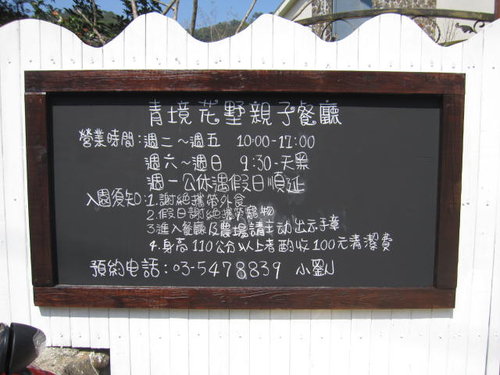 青境花墅親子餐廳
營業時間:週二~週五 10:00-17:00
週六~週日 9:30-天黑
週一公休遇假日順延
入園須知:1.謝絕攜帶外食
2.假日謝絕攜帶寵物
3.進入餐廳及農場請主動出示手章
4.身高110公分以上者酌收100元清潔費
預約電話:03-5478839 小劉